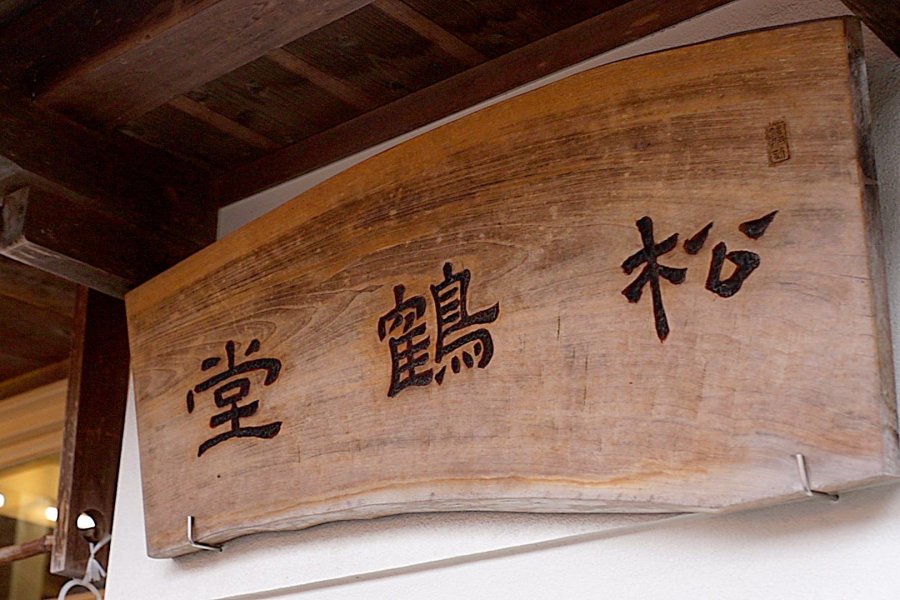 松鶴堂